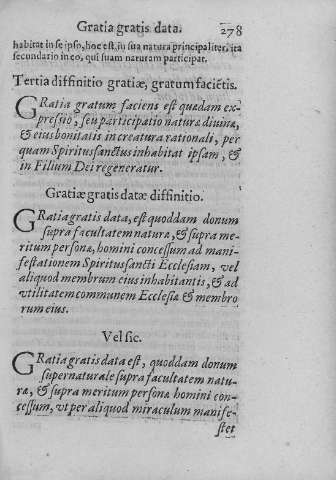 Gratia gratis data. 278
habitat in se ipso, hoc est, in sua natura principaliter, ita
secundario in eo, qui suam naturam participat.
Tertia diffinitio gratiæ, gratum faciẽtis.
GRatia gratum faciens est quædam ex-
pressio, seu participatio naturæ diuinæ,
& eius bonitatis in creatura rationali, per
quam Spiritus sanctus inhabitat ipsam, &
in Filium Dei regeneratur.
Gratiæ gratis datæ diffinitio.
GRatia gratis data, est quoddam donum
supra facultatem naturæ, & supra me-
ritum personæ, homini concessum ad mani-
festationem Spiritus sancti Ecclesiam, vel
aliquod membrum eius inhabitantis, & ad
vtilitatem communem Ecclesiæ & membro
rum eius.
Vel sic.
GRatia gratis data est, quoddam donum
supernaturale supra facultatem natu-
ræ, & supra meritum personæ homini con-
cessum, vt per aliquod miraculum manife-
stet